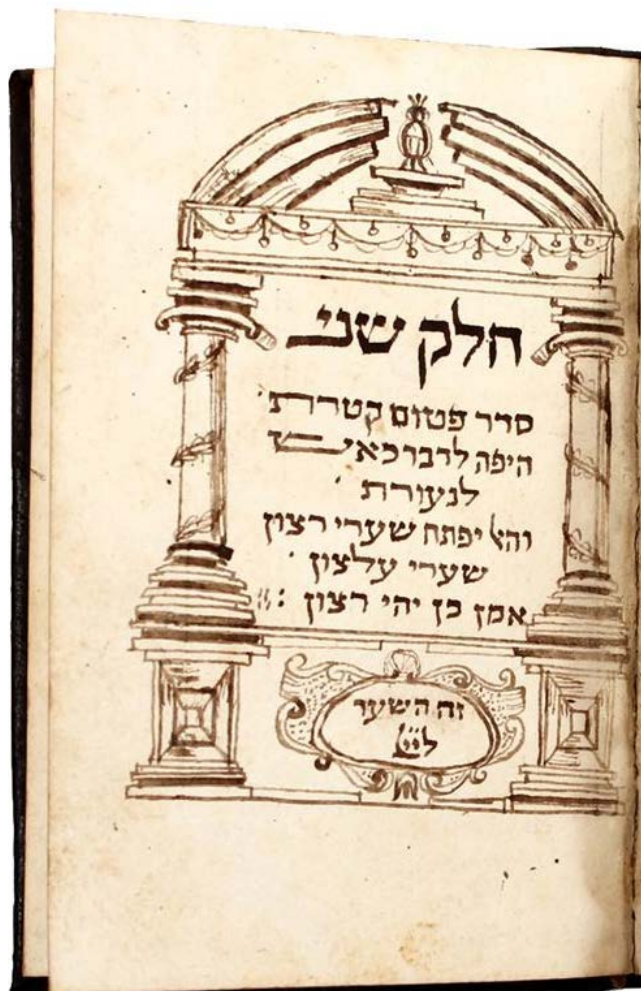 חלק שני
סדר פטום קטורת
היפה
לנעורת
והאל יפתח שערי רצון
שערי עלצון
אמן כן יהי רצון :
זה השער